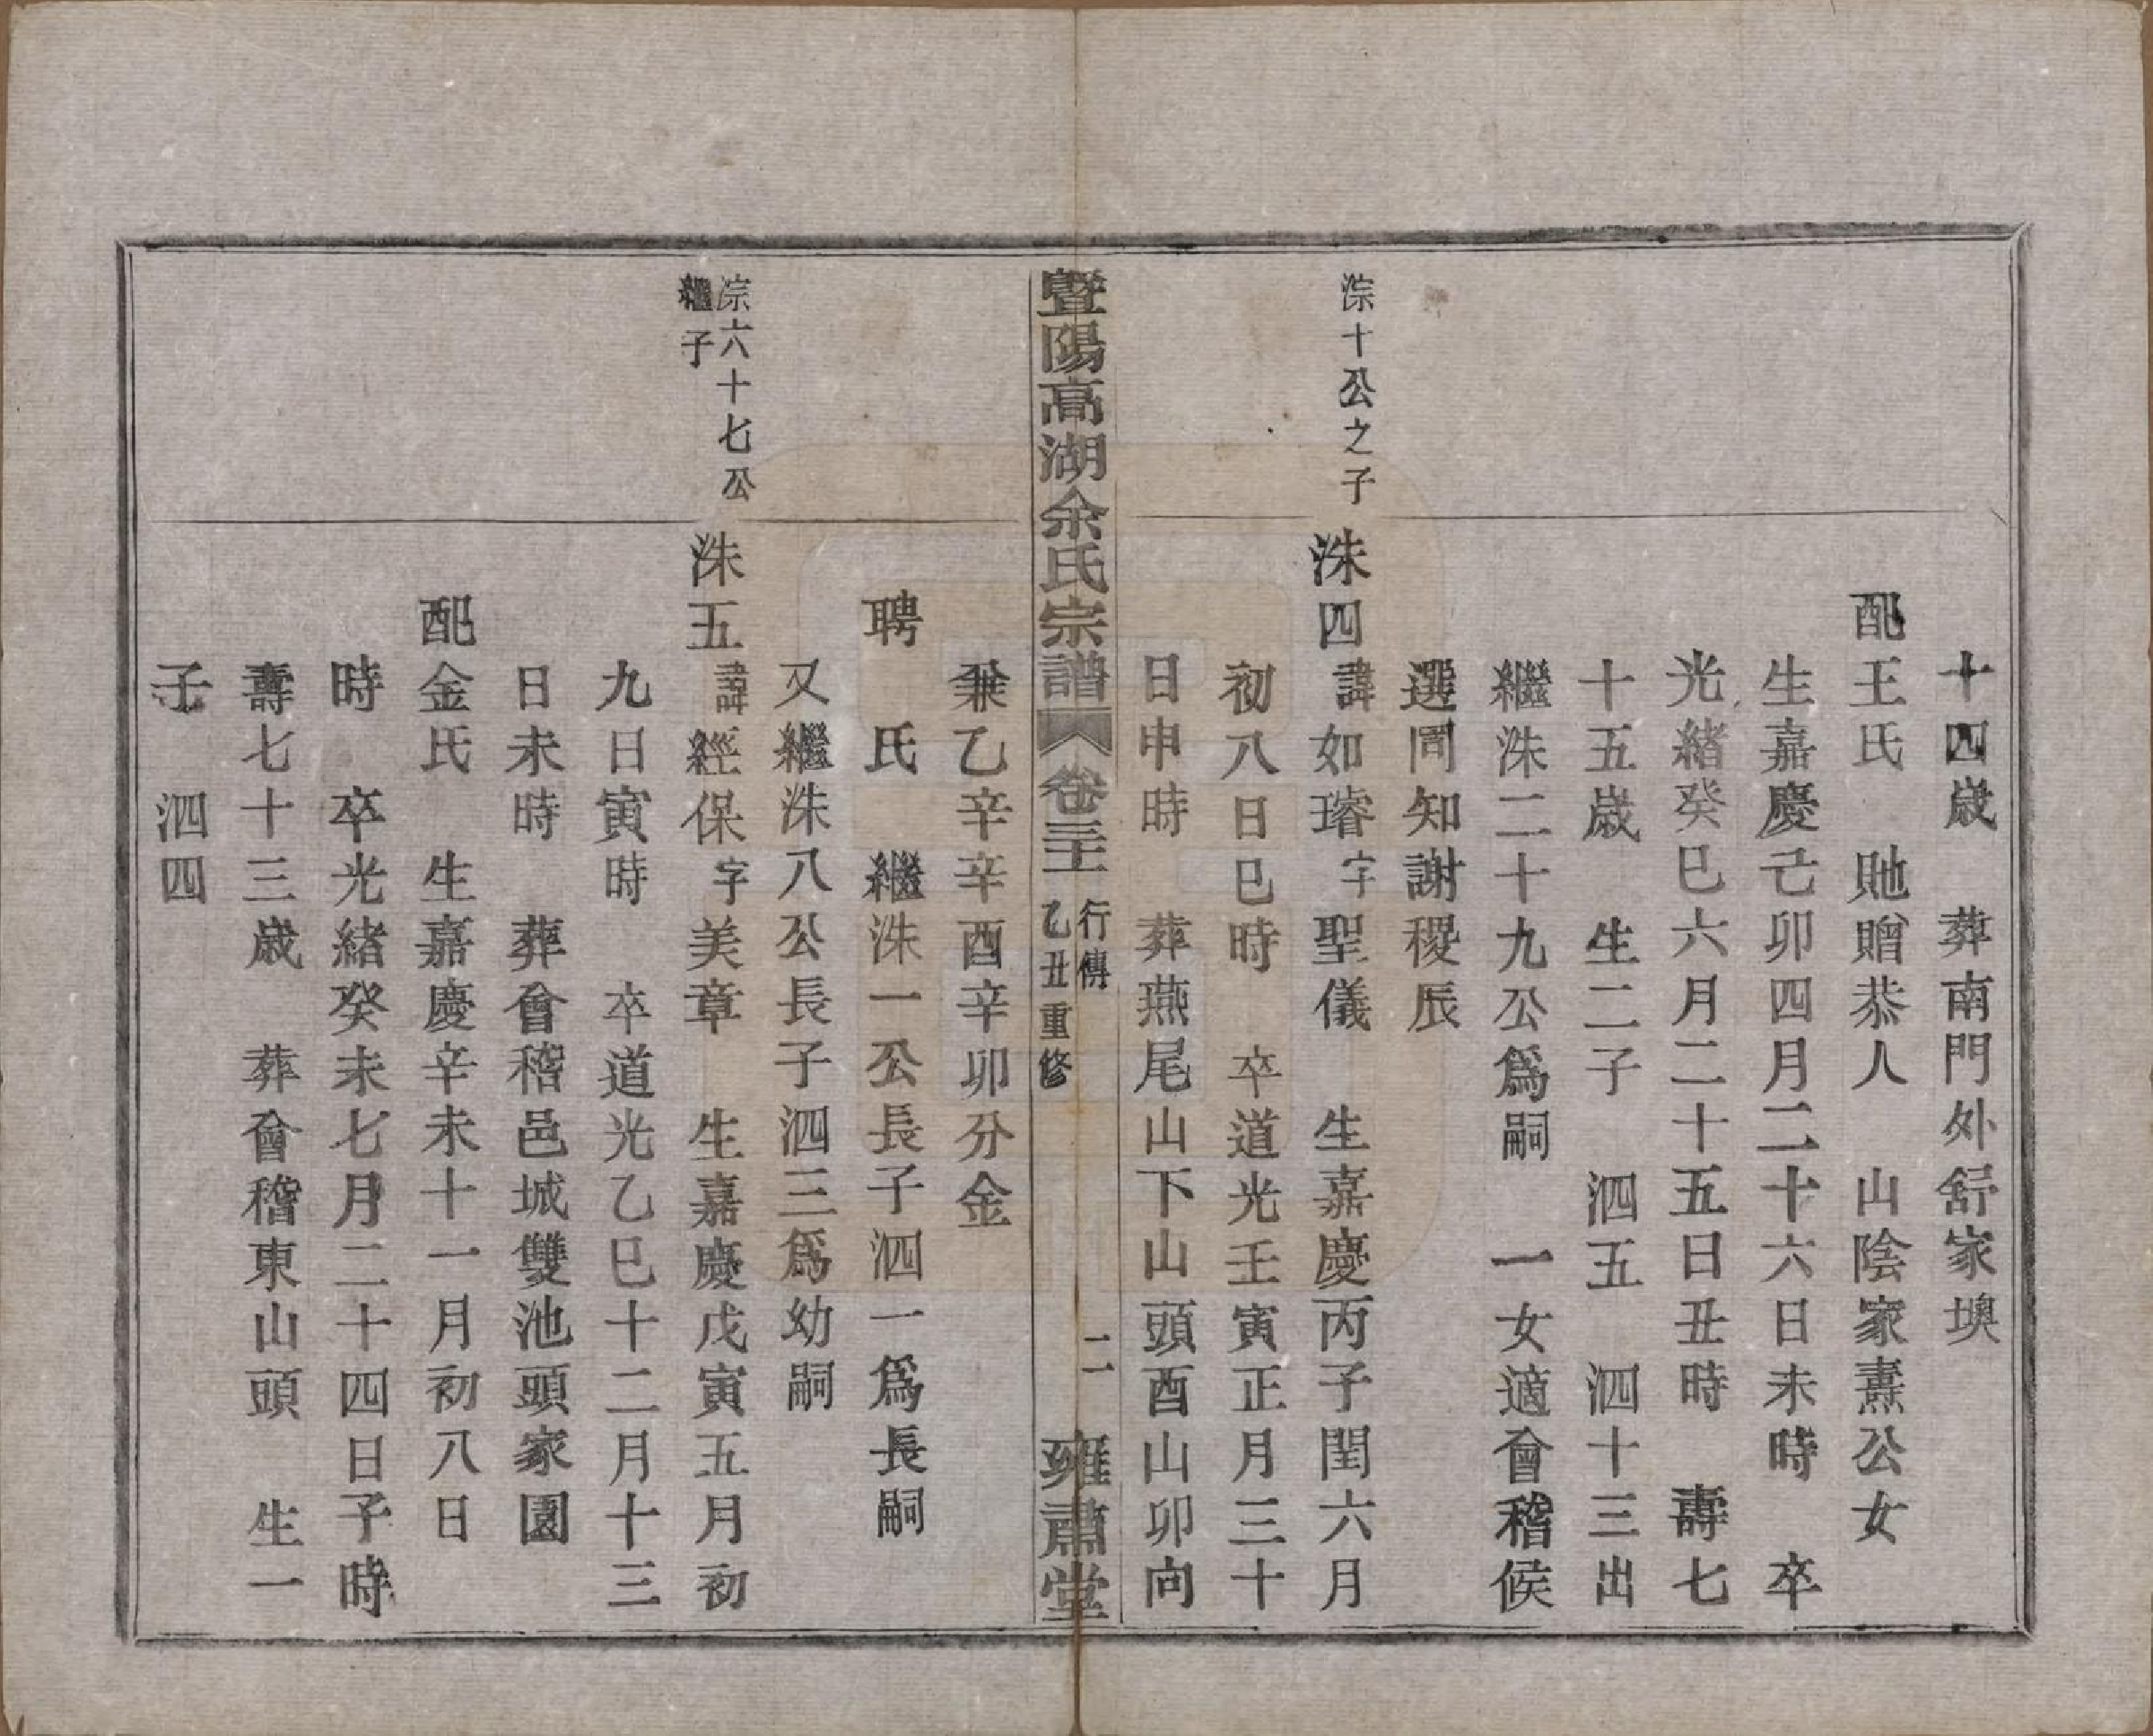 十四歲　葬南門外舒家墺
配王氏　貤贈恭人　山陰家燾公女
生嘉慶己卯四月二十六日未時　卒
光緒癸巳六月二十五日丑時　壽七
十五歲　生二子　泗五　泗十三出
繼洙二十九公爲嗣　一女適會稽候
選同知謝稷辰
淙十公之子
洙四諱如璿字聖儀　生嘉慶丙子閏六月
初八日巳時　卒道光壬寅正月三十
日申時　葬燕尾山下山頭酉山卯向
暨陽高湖余氏宗譜　卷三十一　行傳　乙丑重修　二　雍肅堂
兼乙辛辛酉辛卯分金
聘　氏　繼洙一公長子泗一爲長嗣
又繼洙八公長子泗三爲幼嗣
淙六十七公
繼子
洙五諱經保字美章　生嘉慶戊寅五月初
九日寅時　卒道光乙巳十二月十三
日未時　葬會稽邑城雙池頭家園
配金氏　生嘉慶辛未十一月初八日
時　卒光緒癸未七月二十四日子時
壽七十三歲　葬會稽東山頭　生一
子　泗四